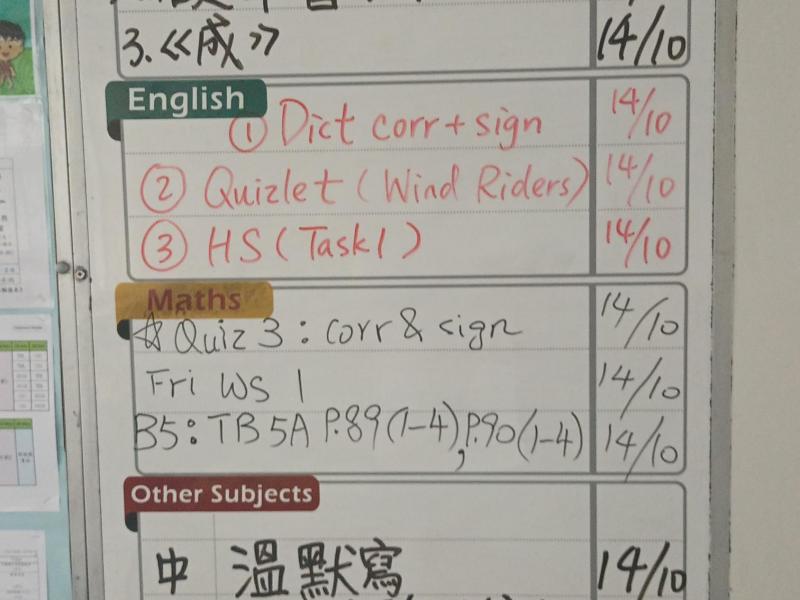 3.《成》 14/10
English
① Dict corr + sign 14/10
② Quizlet (Wind Riders) 14/10
③ HS (Task 1) 14/10
Maths
☆ Quiz 3 : corr & sign 14/10
Fri WS 1 14/10
B5 : TB 5A P.89 (1-4), P.90 (1-4) 14/10
Other Subjects
中 溫默寫 14/10